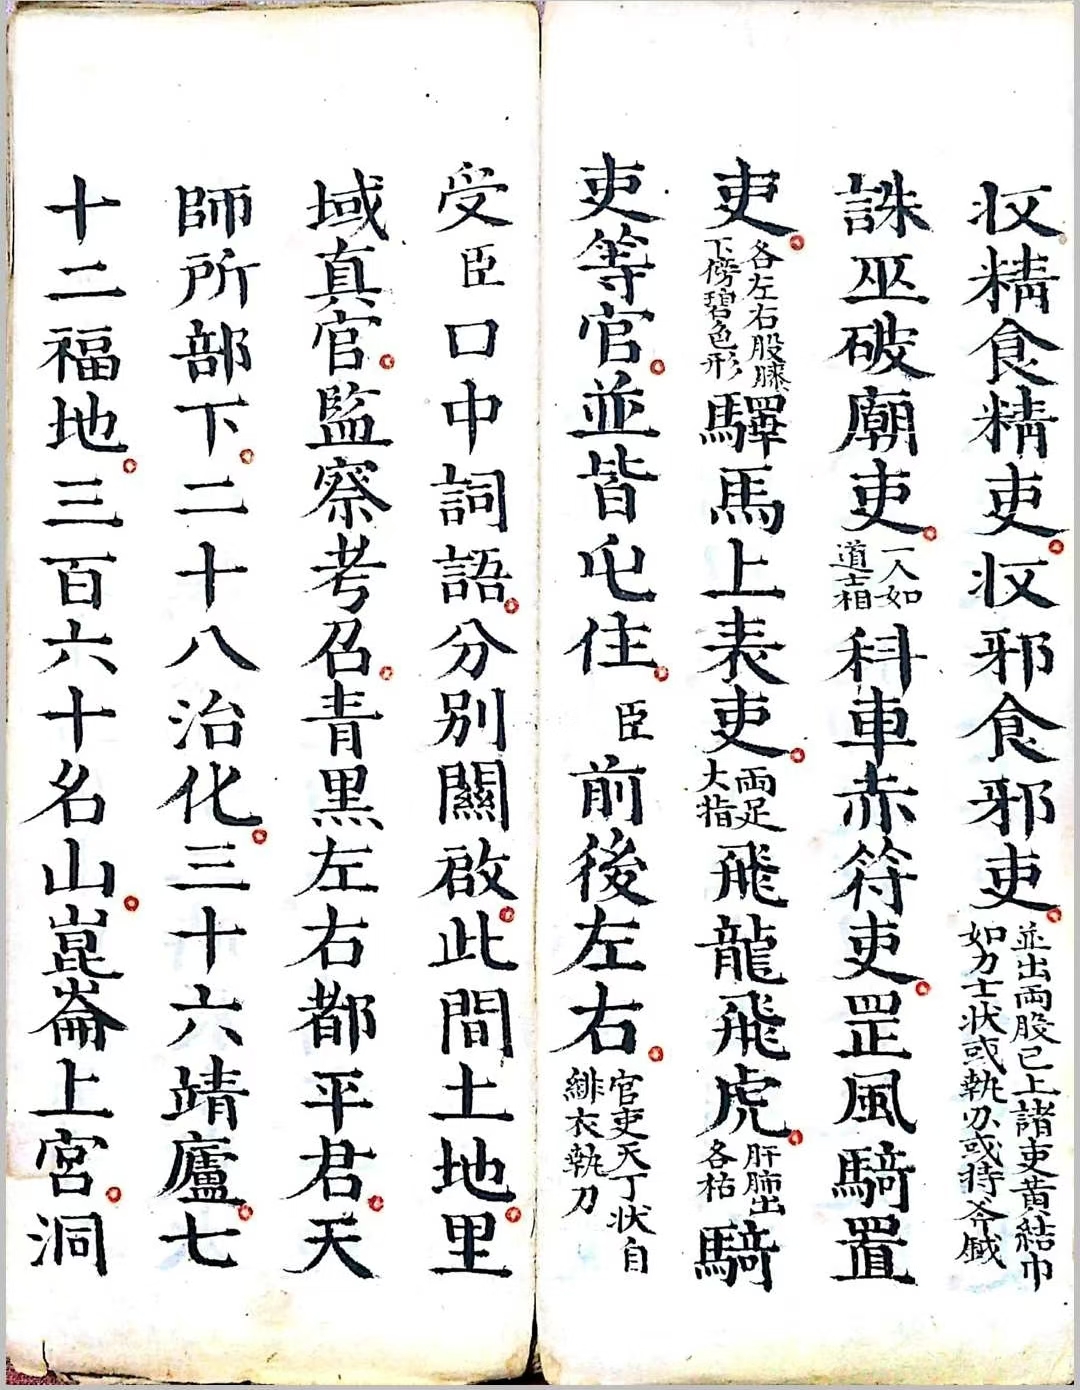 収精食精吏収邪食邪吏並出両股已上諸吏黄結巾如力士状或執刀或持斧鉞
誅巫破廟吏一人如道士相科車赤符吏罡風騎置
吏各左右股膝下傍碧色形驛馬上表吏両足大指飛龍飛虎肝肺出各祐騎
吏等官並皆屯住臣前後左右官吏天丁状自緋衣執刀
受臣口中詞語分別關啟此間土地里
域真官監察考召青黑左右都平君天
師所部下二十八治化三十六靖廬七
十二福地三百六十名山崑崙上宮洞